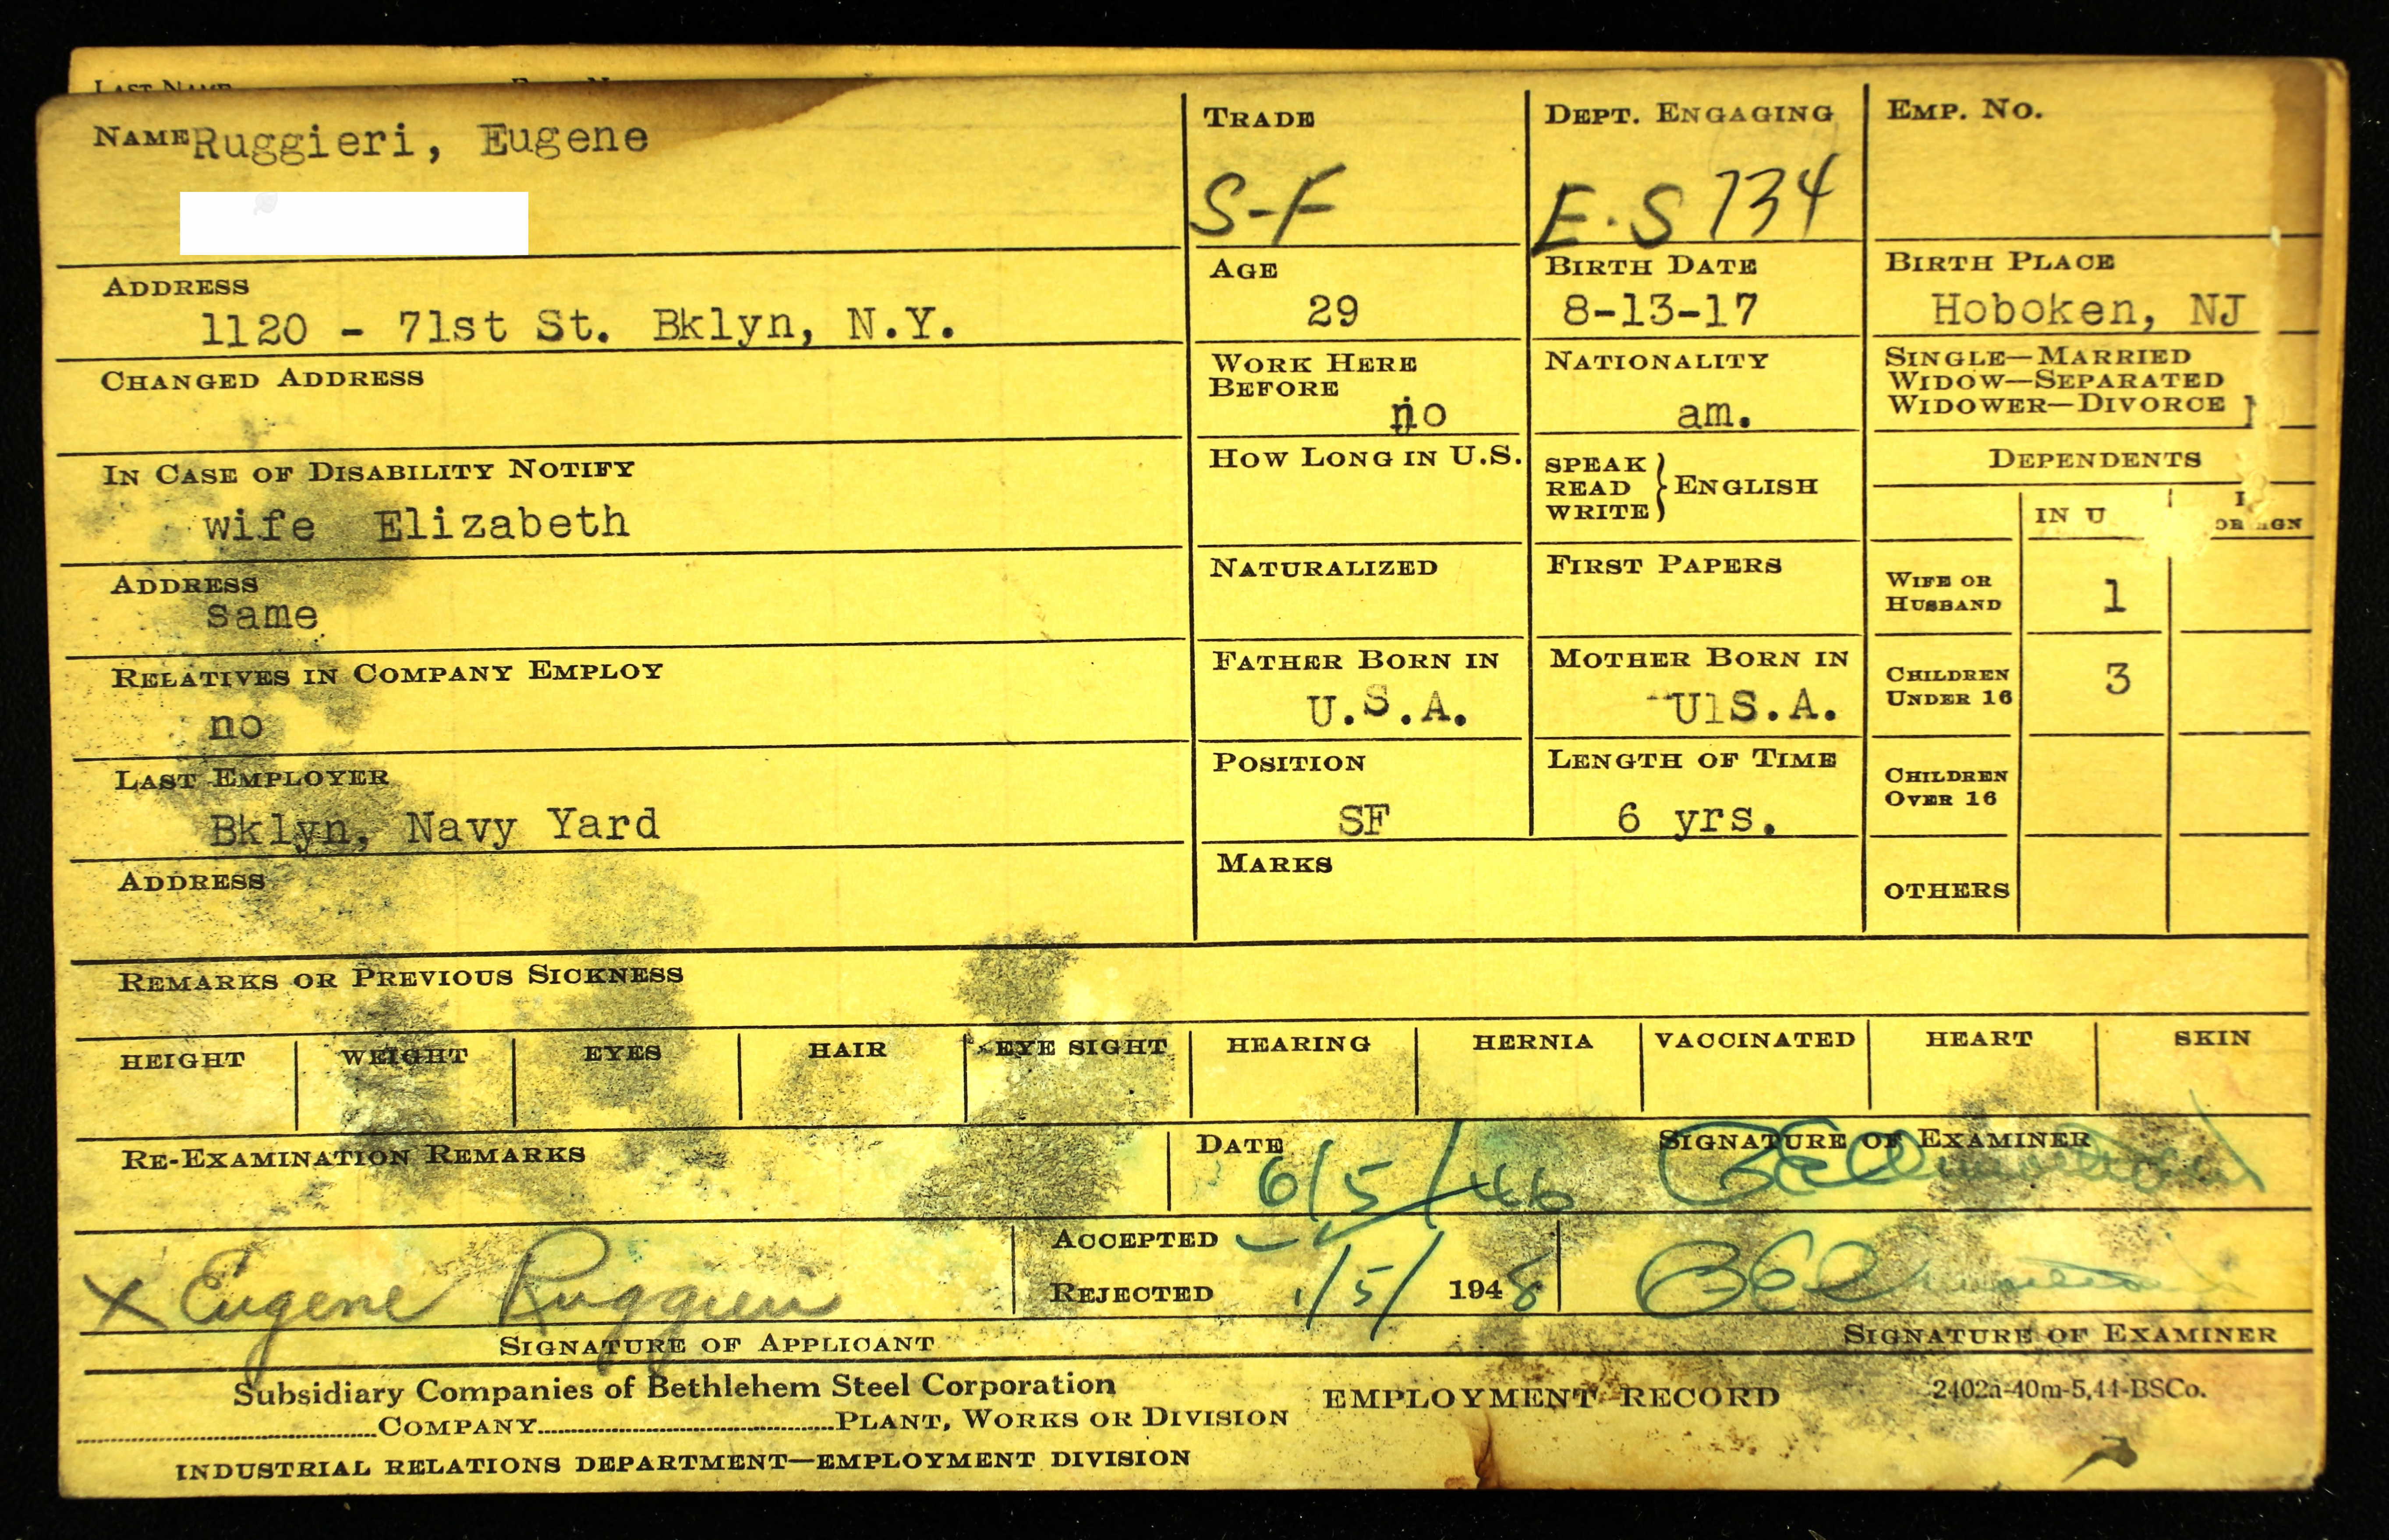 LAST NAME
NAME Ruggieri, Eugene
TRADE
S-F
DEPT. ENGAGING
E.S 734
EMP. NO.
ADDRESS
1120 - 71st St. Bklyn, N.Y.
AGE
29
BIRTH DATE
8-13-17
BIRTH PLACE
Hoboken, NJ
CHANGED ADDRESS
WORK HERE
BEFORE
no
NATIONALITY
am.
SINGLE—MARRIED
WIDOW—SEPARATED
WIDOWER—DIVORCE
IN CASE OF DISABILITY NOTIFY
wife Elizabeth
HOW LONG IN U.S.
SPEAK
READ
WRITE
ENGLISH
DEPENDENTS
IN U
ADDRESS
same
NATURALIZED
FIRST PAPERS
WIFE OR
HUSBAND
1
RELATIVES IN COMPANY EMPLOY
no
FATHER BORN IN
U.S.A.
MOTHER BORN IN
UlS.A.
CHILDREN
UNDER 16
3
LAST EMPLOYER
Bklyn, Navy Yard
POSITION
SF
LENGTH OF TIME
6 yrs.
CHILDREN
OVER 16
ADDRESS
MARKS
OTHERS
REMARKS OR PREVIOUS SICKNESS
HEIGHT WEIGHT EYES HAIR EYE SIGHT HEARING HERNIA VACCINATED HEART SKIN
RE-EXAMINATION REMARKS
DATE
6/5/46
SIGNATURE OF EXAMINER
ACCEPTED
REJECTED
/5/ 1948
X Eugene Ruggieri
SIGNATURE OF APPLICANT
SIGNATURE OF EXAMINER
Subsidiary Companies of Bethlehem Steel Corporation
COMPANY PLANT, WORKS OR DIVISION
INDUSTRIAL RELATIONS DEPARTMENT—EMPLOYMENT DIVISION
EMPLOYMENT RECORD
2402a-40m-5,44-BSCo.